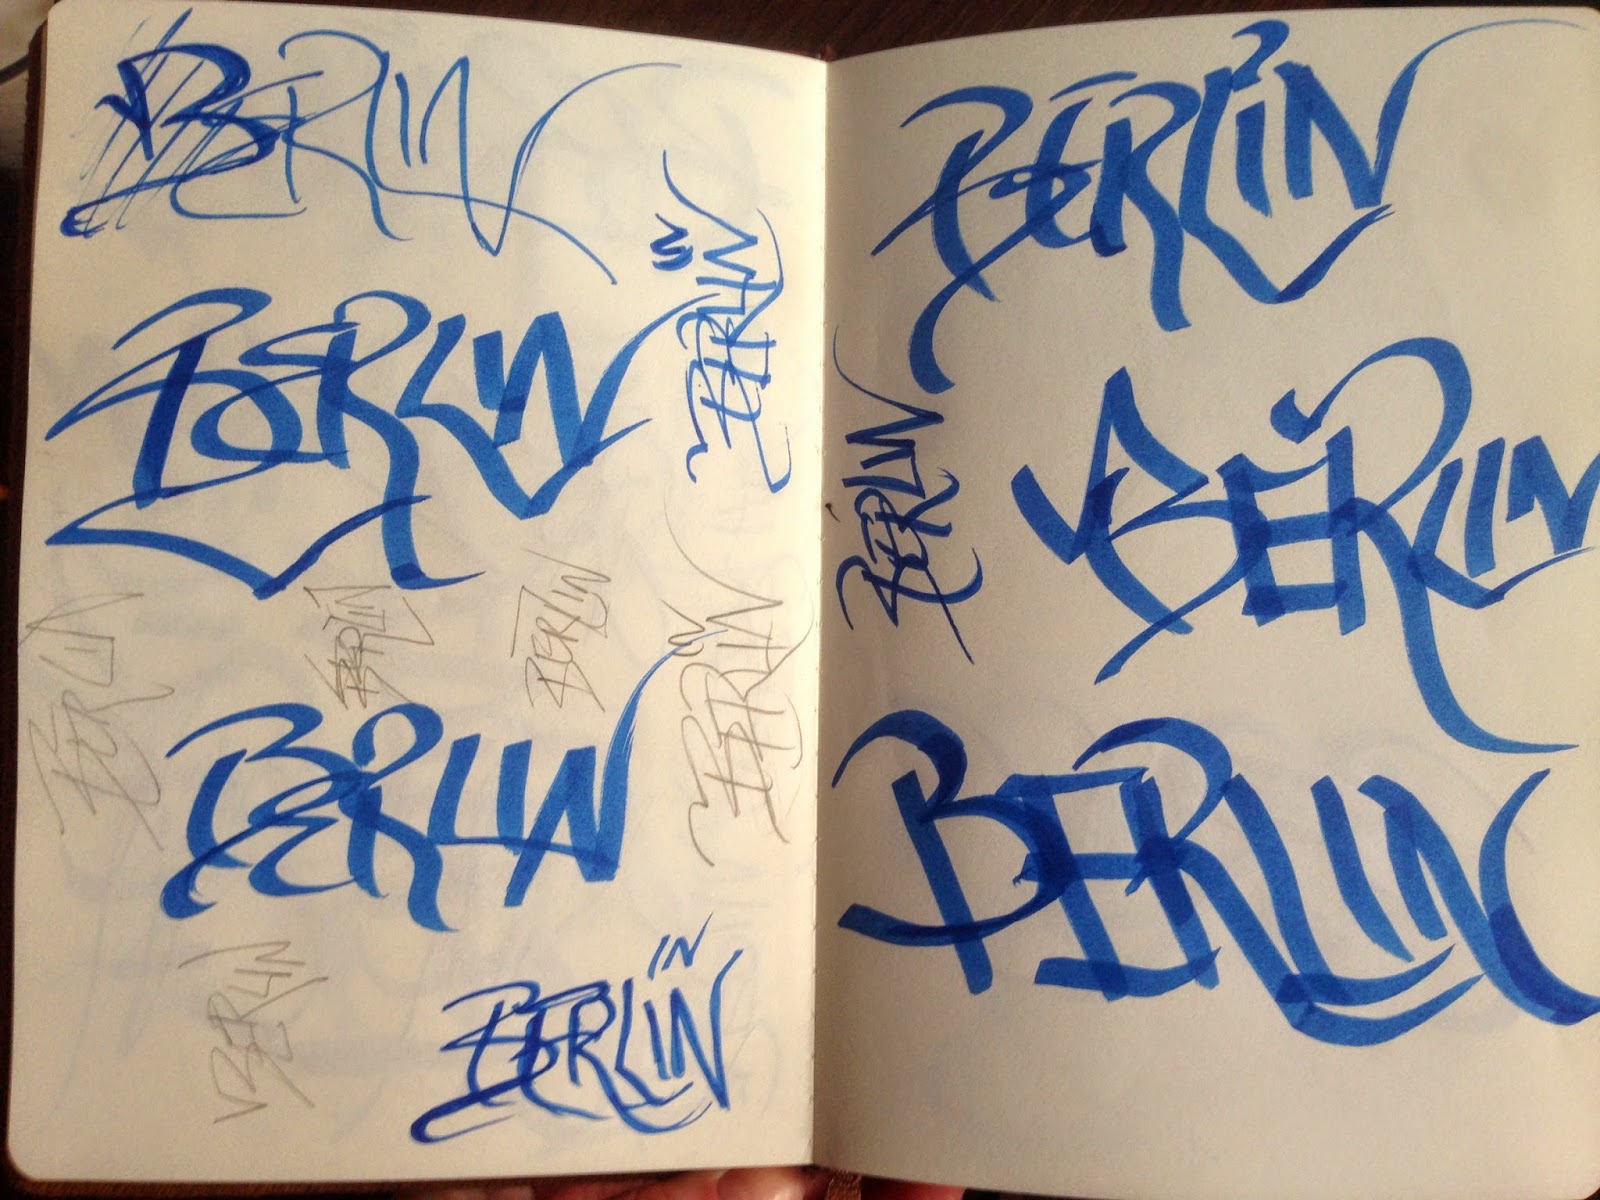 BERLIN
BERLIN
BERLIN
BERLIN
BERLIN
BERLIN
BERLIN
BERLIN
BERLIN
IN
BERLIN
BERLIN
BERLIN
BERLIN
BERLIN